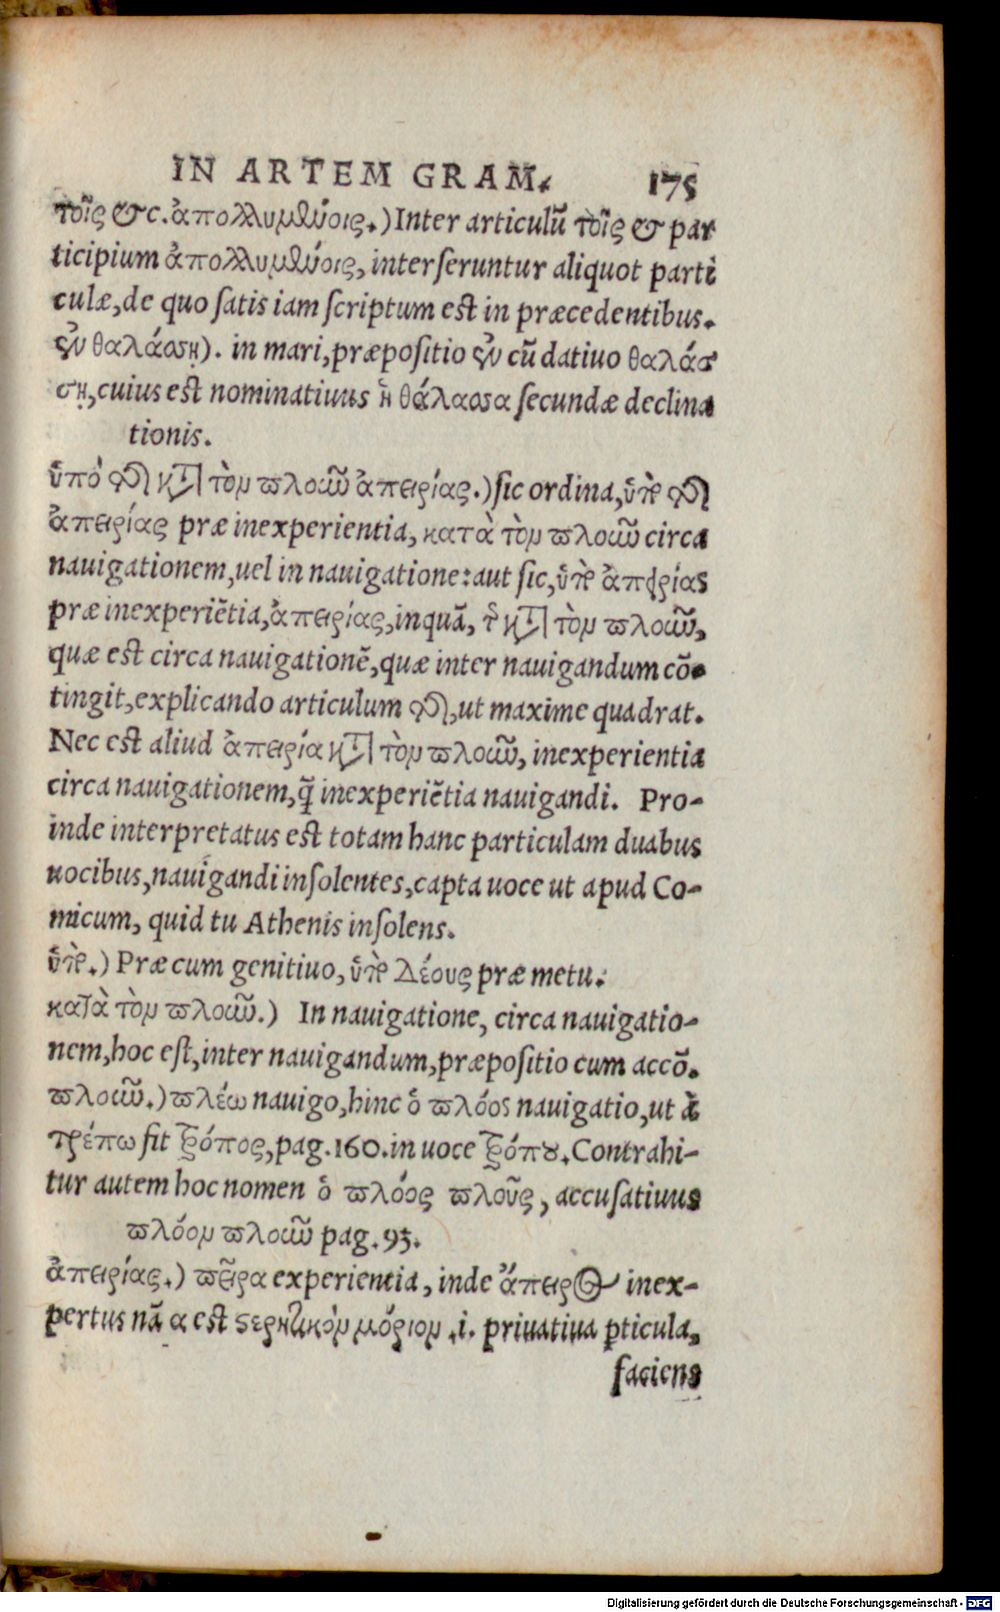 IN ARTEM GRAM. 175
τοῖς &c. ἀπολλυμένοις.) Inter articulũ τοῖς & par
ticipium ἀπολλυμένοις, interseruntur aliquot parti
culæ, de quo satis iam scriptum est in præcedentibus.
ἐν θαλάσσῃ). in mari, præpositio ἐν cũ datiuo θαλάσ
σῃ, cuius est nominatiuus ἡ θάλασσα secundæ declina
tionis.
ὑπὸ τῆς κατὰ τὸν πλοῦν ἀπειρίας.) sic ordina, ὑπὸ τῆς
ἀπειρίας præ inexperientia, κατὰ τὸν πλοῦν circa
nauigationem, uel in nauigatione: aut sic, ὑπὸ ἀπειρίας
præ inexperiẽtia, ἀπειρίας, inquã, τῆς κατὰ τὸν πλοῦν,
quæ est circa nauigationẽ, quæ inter nauigandum cõ-
tingit, explicando articulum τῆς, ut maxime quadrat.
Nec est aliud ἀπειρία κατὰ τὸν πλοῦν, inexperientia
circa nauigationem, q̃ inexperiẽtia nauigandi. Pro-
inde interpretatus est totam hanc particulam duabus
uocibus, nauigandi insolentes, capta uoce ut apud Co-
micum, quid tu Athenis insolens.
ὑπὸ.) Præ cum genitiuo, ὑπὸ δέους præ metu.
κατὰ τὸν πλοῦν.) In nauigatione, circa nauigatio-
nem, hoc est, inter nauigandum, præpositio cum accõ.
πλοῦν.) πλέω nauigo, hinc ὁ πλόος nauigatio, ut à
τρέπω fit τρόπος, pag. 160. in uoce τρόπου. Contrahi-
tur autem hoc nomen ὁ πλόος πλοῦς, accusatiuus
πλόον πλοῦν pag. 93.
ἀπειρίας.) πεῖρα experientia, inde ἄπειρος inex-
pertus nã α est στερητικὸν μόριον .i. priuatiua pticula,
faciens
Digitalisierung gefördert durch die Deutsche Forschungsgemeinschaft - DFG